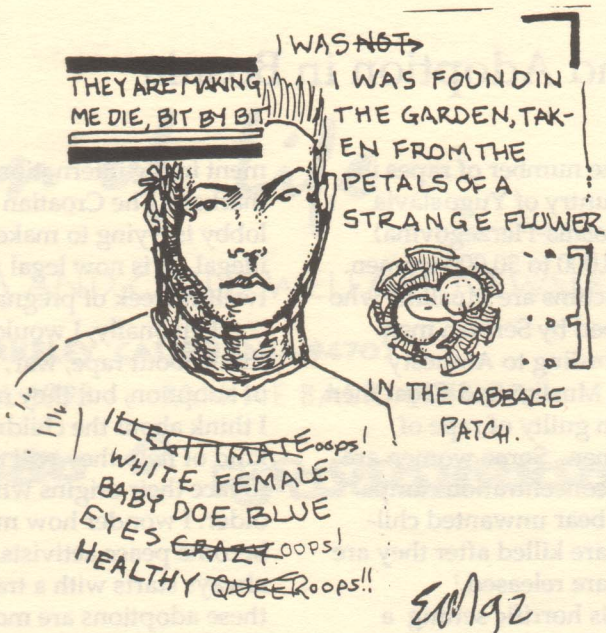 I WAS NOT
THEY ARE MAKING
ME DIE, BIT BY BIT
I WAS FOUND IN
THE GARDEN, TAK-
EN FROM THE
PETALS OF A
STRANGE FLOWER
IN THE CABBAGE
PATCH.
ILLEGITIMATE oops!
WHITE FEMALE
BABY DOE BLUE
EYES CRAZY oops!
HEALTHY QUEER oops!!